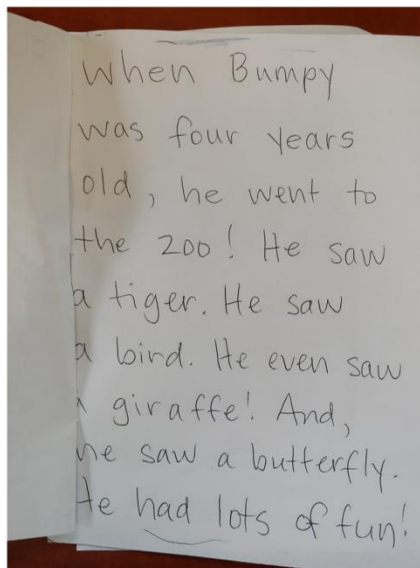 When Bumpy
was four years
old, he went to
the zoo! He saw
a tiger. He saw
a bird. He even saw
a giraffe! And,
he saw a butterfly.
He had lots of fun!